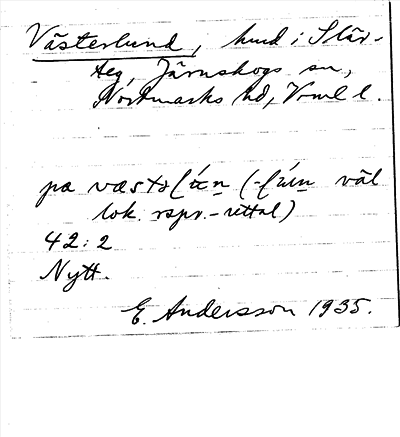 Västerlund, hmd i Slär-
teg, Järnskogs sn,
Nordmarks hd, Vrml l.
pa
väl
lok. rspr.-uttal)
42:2
Nytt.
E. Andersson 1935.